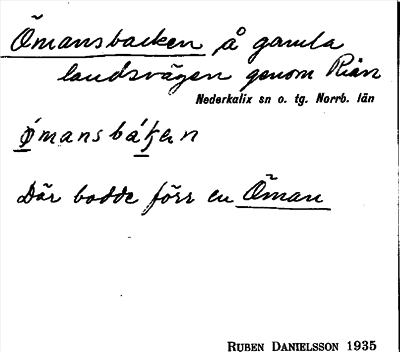 Ömansbacken å gamla
landsvägen genom Rian
Nederkalix sn o. tg. Norrb. län
ǿmansbáꞣen
Där bodde förr en Öman
RUBEN DANIELSSON 1935